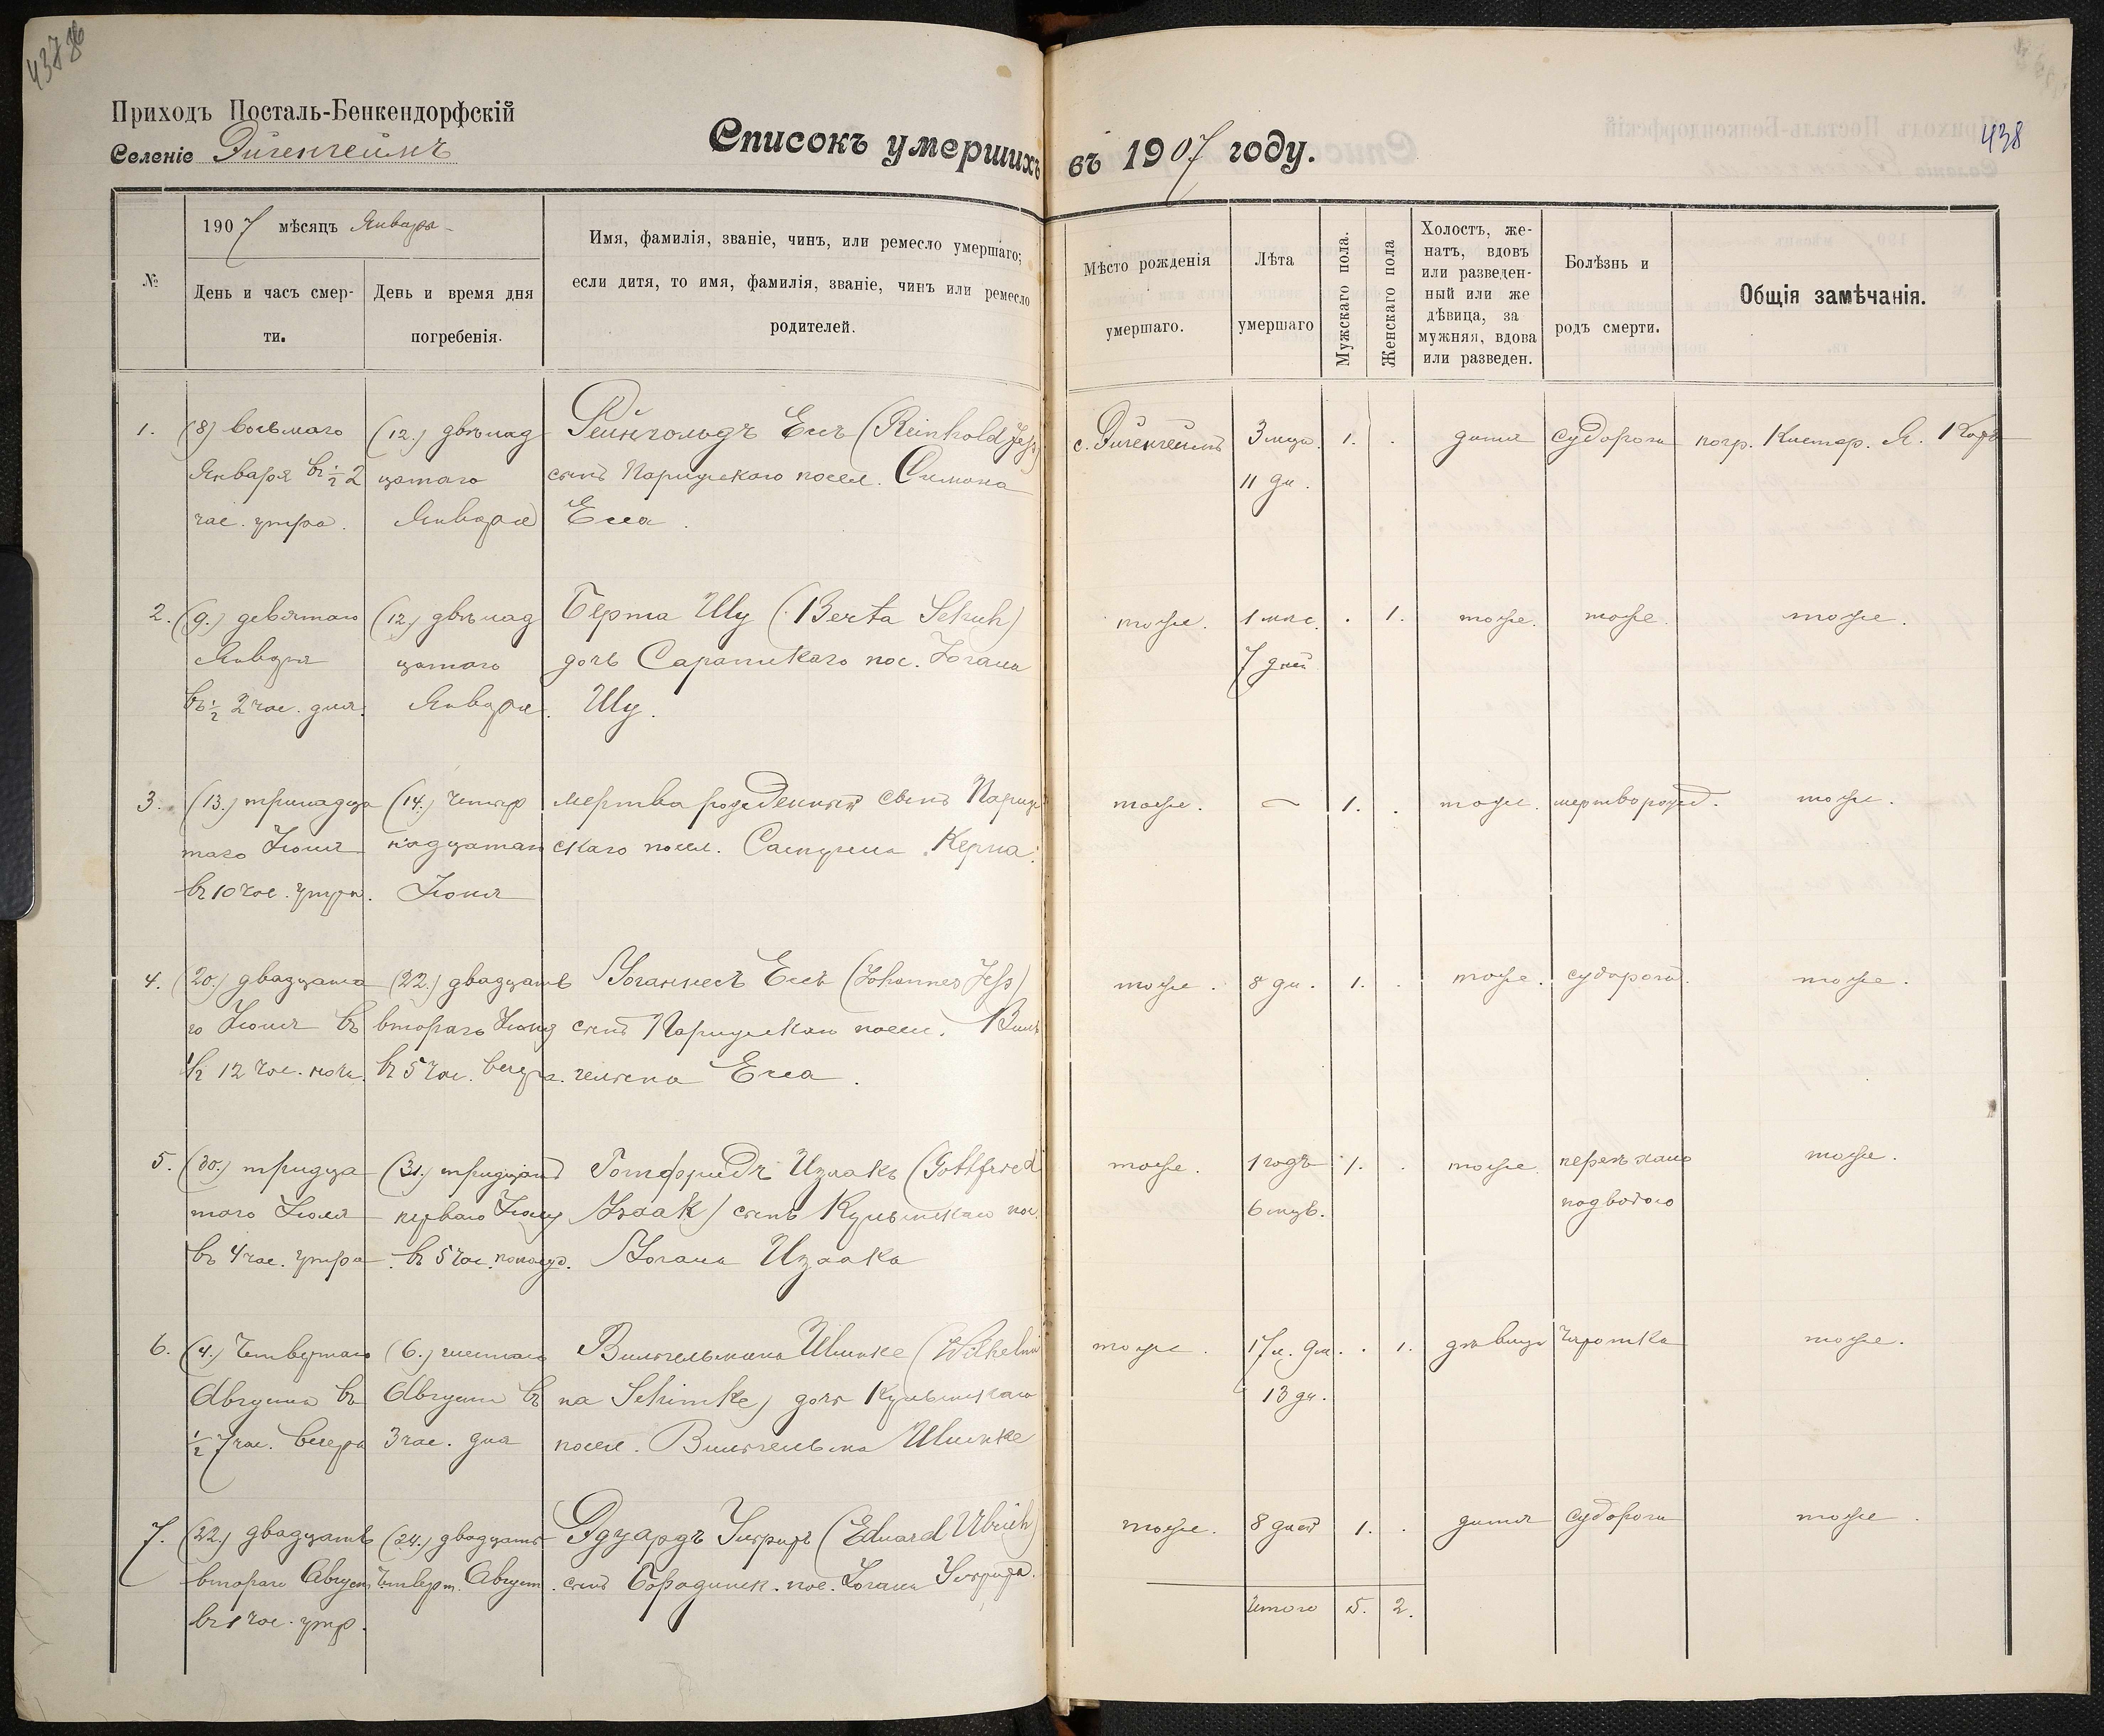 438
Приходъ Посталь-Бенкендорфскій
Селеніе Эйгенгеймъ
Списокъ умершихъ въ 1907 году.
438
№
1907 мѣсяцъ Январь
День и часъ смерти.
День и время дня погребенія.
Имя, фамилія, званіе, чинъ, или ремесло умершаго; если дитя, то имя, фамилія, званіе, чинъ или ремесло родителей.
Мѣсто рожденія умершаго.
Лѣта умершаго
Мужскаго пола.
Женскаго пола
Холостъ, женатъ, вдовъ или разведенный или же дѣвица, за мужняя, вдова или разведен.
Болѣзнь и родъ смерти.
Общія замѣчанія.
1. (8) восьмаго (12.) двѣнад Рейнгольдъ Есъ (Reinhold Jess) с. Эйгенгеймъ 3 мѣс. 1. . дитя судороги погр. Кистер. Я.
Января въ ½ 2 цатаго сынъ Парижскаго посел. Симона 11 дн.
час. утра. Января Еса.
2. (9.) девятаго (12.) двѣнад Берта Шу (Berta Schuh) тоже. 1 мѣс. . 1. тоже. тоже. тоже.
Января цатаго дочь Саратскаго пос. Іогана 7 дней
въ ½ 2 час. дня. Января. Шу.
3. (13.) тринадца (14.) четыр мертворожденный сынъ Париж тоже. — 1. . тоже. мертворожд. тоже.
таго Іюня надцатаго скаго посел. Керна.
въ 10 час. утра. Іюня
4. (20.) двадцата (22.) двадцать Іоганнесъ Есъ (Johannes Jess) тоже. 8 дн. 1. . тоже. судороги. тоже.
го Іюня въ втораго Іюня сынъ Парижскаго посел. Виль
½ 12 час. ночи. въ 5 час. вечера. гельма Еса.
5. (30.) тридца (31.) тридцать Готфридъ Изаакъ (Gottfried тоже. 1 годъ 1. . тоже. переѣхано тоже.
таго Іюля перваго Іюля Isaak) сынъ Кульмскаго пос. 6 мѣс. подводою
въ 4 час. утра. въ 5 час. пополуд. Іогана Изаака
6. (4.) четвертаго (6.) шестаго Вильгельмина Шимке (Wilhelmi тоже. . 1. дѣвица чахотка тоже.
Августа въ Августа въ na Schimke) дочь Кульмскаго 13 дн.
½ 7 час. вечера 3 час. дня посел. Вильгельма Шимке
7. (22.) двадцать (24.) двадцать Эдуардъ Ульрихъ (Eduard Ulrich) тоже. 8 дней 1. . дитя судороги тоже.
втораго Август. четверт. Август. сынъ Бородинск. пос. Іогана Ульриха.
въ 1 час. утр.
Итого 5. 2.